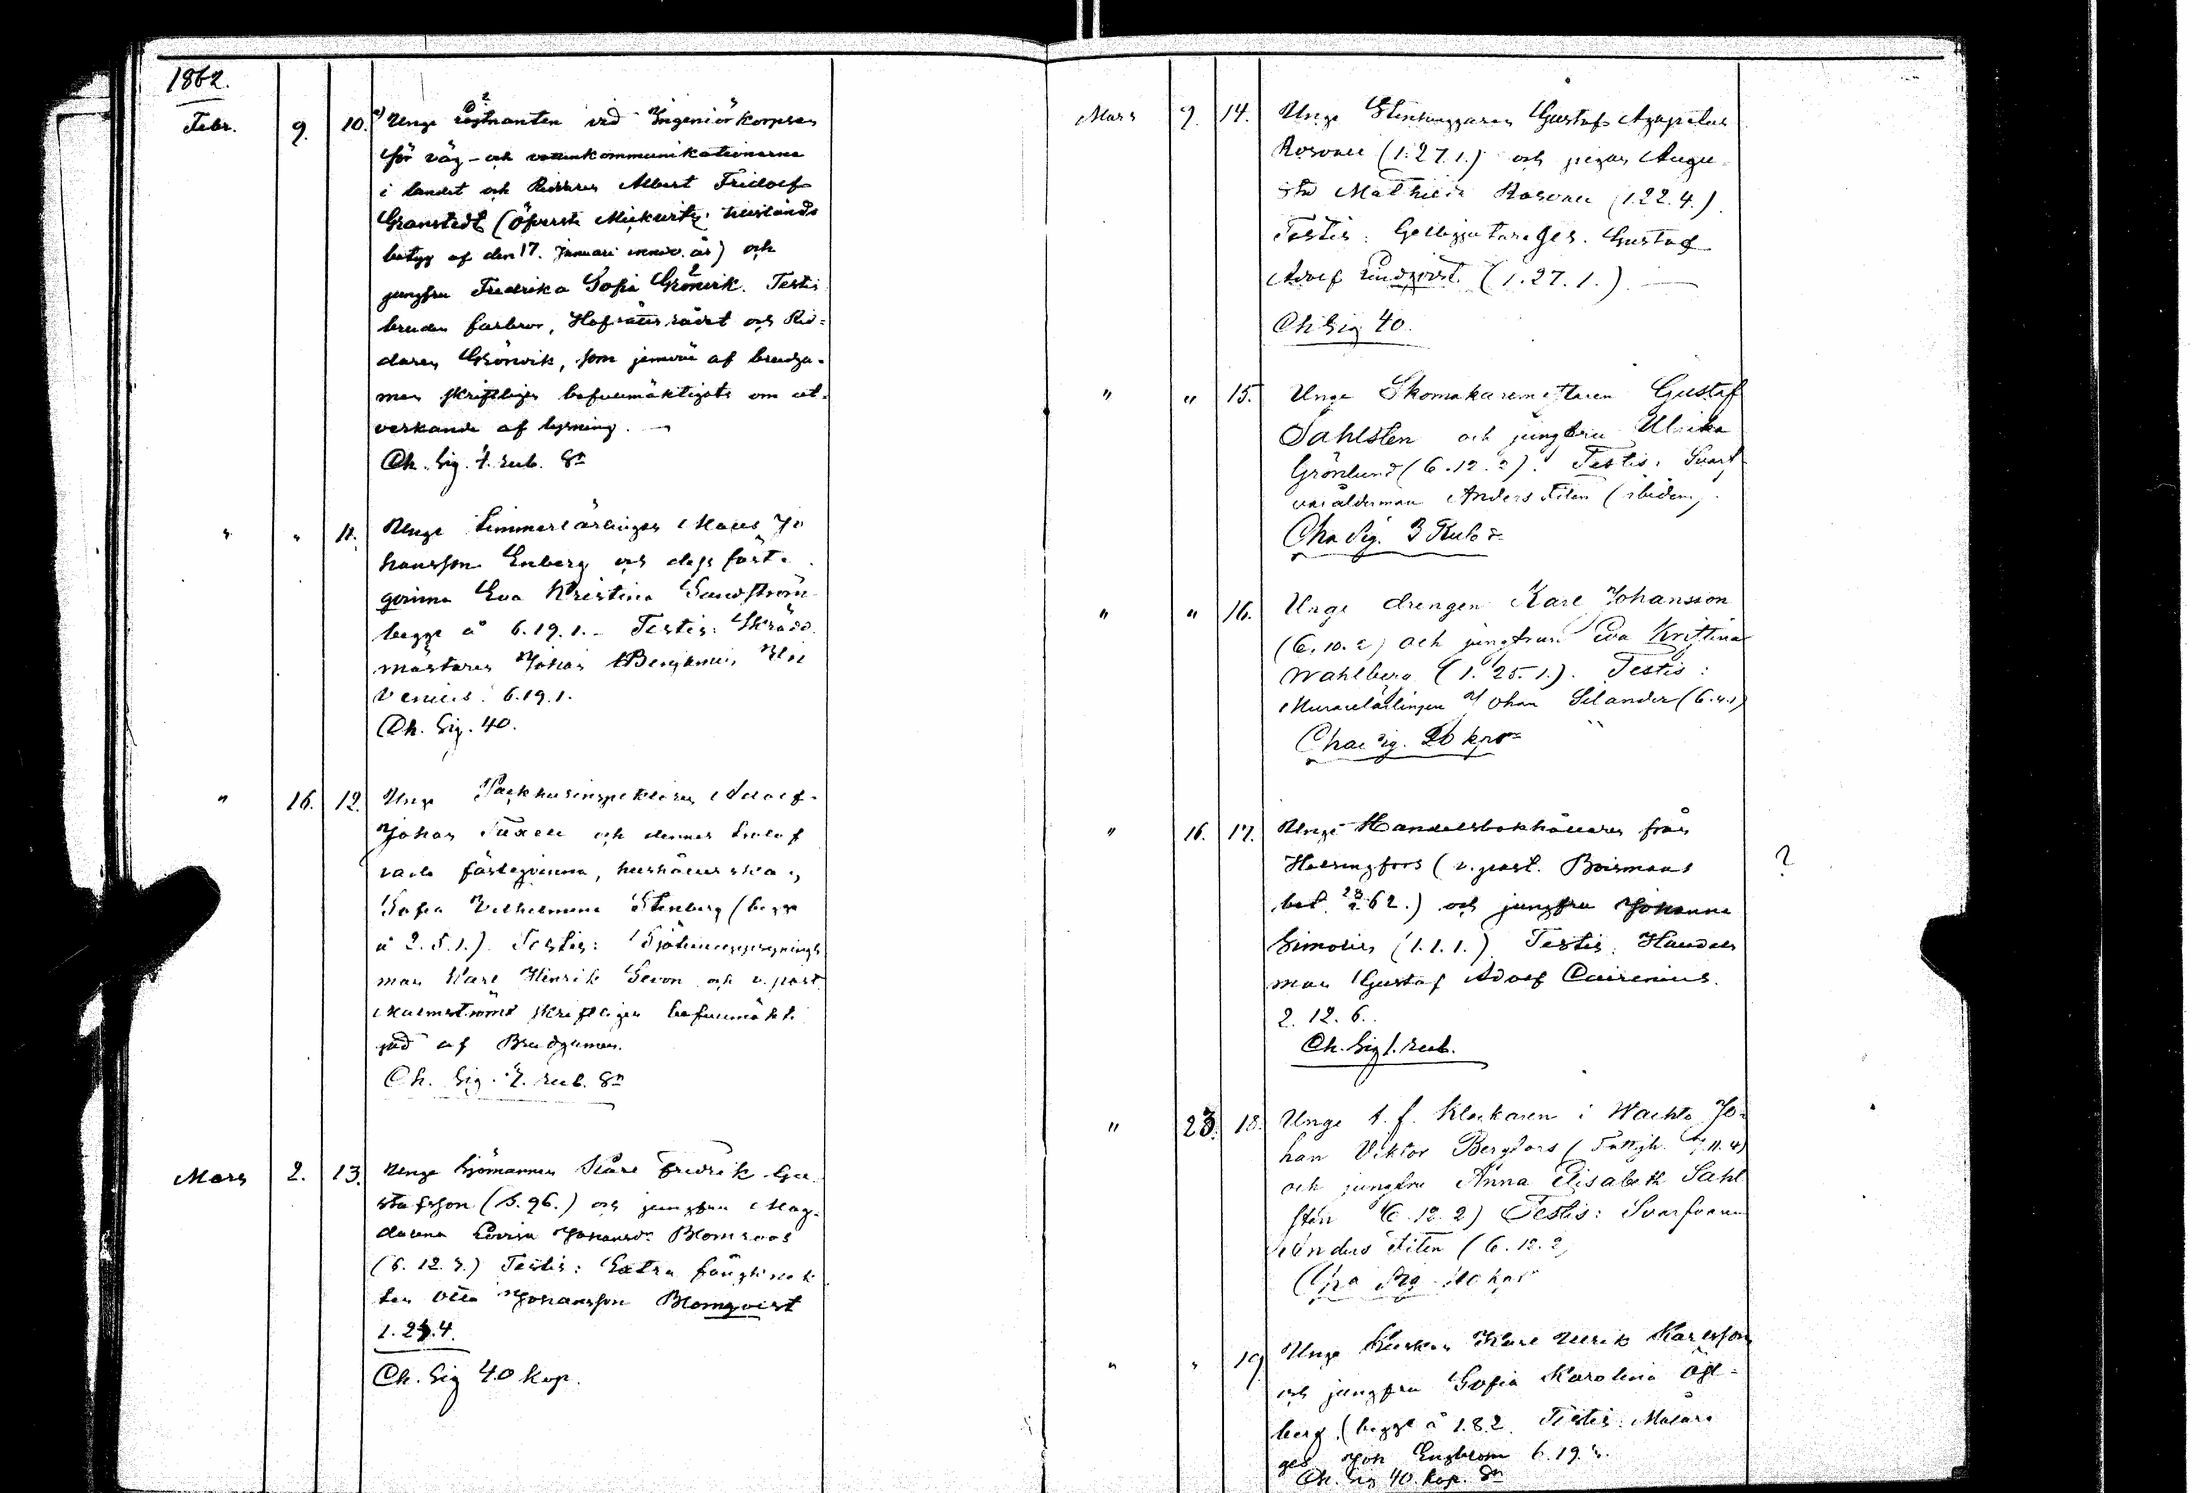 1862.
Febr. 9. 10. Unge löjtnanten vid Ingeniörkorpsen
för väg- och vattenkommunikationerna
i landet och Riddaren Albert Fridolf
Granstedt (öfverste Mickwitz tillstånds
betyg af den 17. Januari innev. år) och
jungfru Fredrika Sofia Grönvik. Testis
brudens farbror, Hofrättsrådet och Rid=
daren Grönvik, som jemväl af brudga-
men skriftligen befullmäktigats om ut-
verkande af lysning. —
Ch. Sig. 7. rub. Sr
" " 11. Unge Timmerlärlingen Jo
hansson Enberg och dess fäst-
qvinna Eva Kristina Sundström
begge å 6.19.1. - Testis: Skrädd.
mästaren Johan Benjamin
6.19.1.
Ch. Sig. 40.
" 16. 12. Unge Packhusinspektoren Adolf
Johan Tuxell och dennes trolof
vade fästeqvinna, hushållerskan
Sofia Vilhelmina Stenberg (begge
å 2.5.1.). Testis:
man Karl Henrik Sevon och v. past.
Malmström skriftligen befullmäkti
gad af Brudgumen.
Ch. Sig. 7. rub. Sr
Mars 2. 13. Unge Sjömannen Karl Fredrik Gu-
stafsson (S. 96.) och jungfru Mag-
dalena Lovisa Johansdr Blomroos
(6. 12. 3.) Testis: Extra fångknek
ten Otto Johansson Blomqvist
1. 24. 4.
Ch. Sig 40 kop.
Mars 9. 14. Unge Stenhuggaren Gustaf Agapetus
Rosovall (1.27.1.) och pigan Augu-
sta Mathilda (1.22.4.).
Testis: Gelbgjutareges. Gustaf
Adolf Lindqvist (1.27.1.). —
Ch Sig 40.
" " 15. Unge Skomakaremästaren Gustaf
Sahlsten och jungfru Ulrika
Grönlund (6.12.2). Testis: Svarf
varålderman Anders Fiten (ibidem).
Cha Sig. 3 Rub Sr
" " 16. Unge drengen Karl Johansson
(6.10.2) och jungfrun Eva Kristina
Wahlberg (1.25.1.). Testis:
Murarelärlingen Johan Selander (6.4.1)
Cha Sig. 20 kop Sr
" 16. 17. Unge Handelsbokhållaren från
Helsingfors (v. past. Boismans ?
bet. 62.) och jungfru Johanna
Simolin (1.1.1.). Testis: Handels
man Gustaf Adolf Cairenius.
2. 12. 6.
Ch. Sig 1. rub.
" 23. 18. Unge t. f. Klockaren i Wachto Jo-
han Viktor Bergfors (Fattigh. 11. 4)
och jungfru Anna Elisabeth Sahl
sten (6.12.2) Testis: Svarfvaren
Anders Fiten (6.12.2)
Cha Sig 40 kop
" " 19. Unge Kusken Karl Ulrik Karlsson
och jungfru Sofia Karolina Ågl-
berg (begge å 1.8.2. Testis: Målare
ges Joh Engblom 6.19.
Ch. Sig 40. kop. Sr